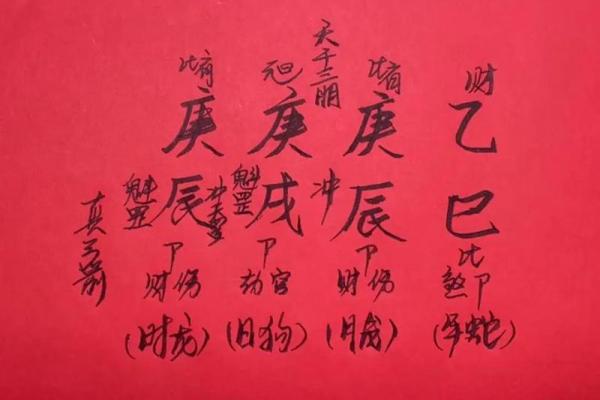 天干三朋
比肩 比肩 财
庚 庚 庚 乙
魁罡 辰 冲 魁罡 戌 冲 辰 巳
卩 卩 卩 比
财伤 劫官 财伤 煞卩
(时龙) (日狗) (月龙) (年蛇)